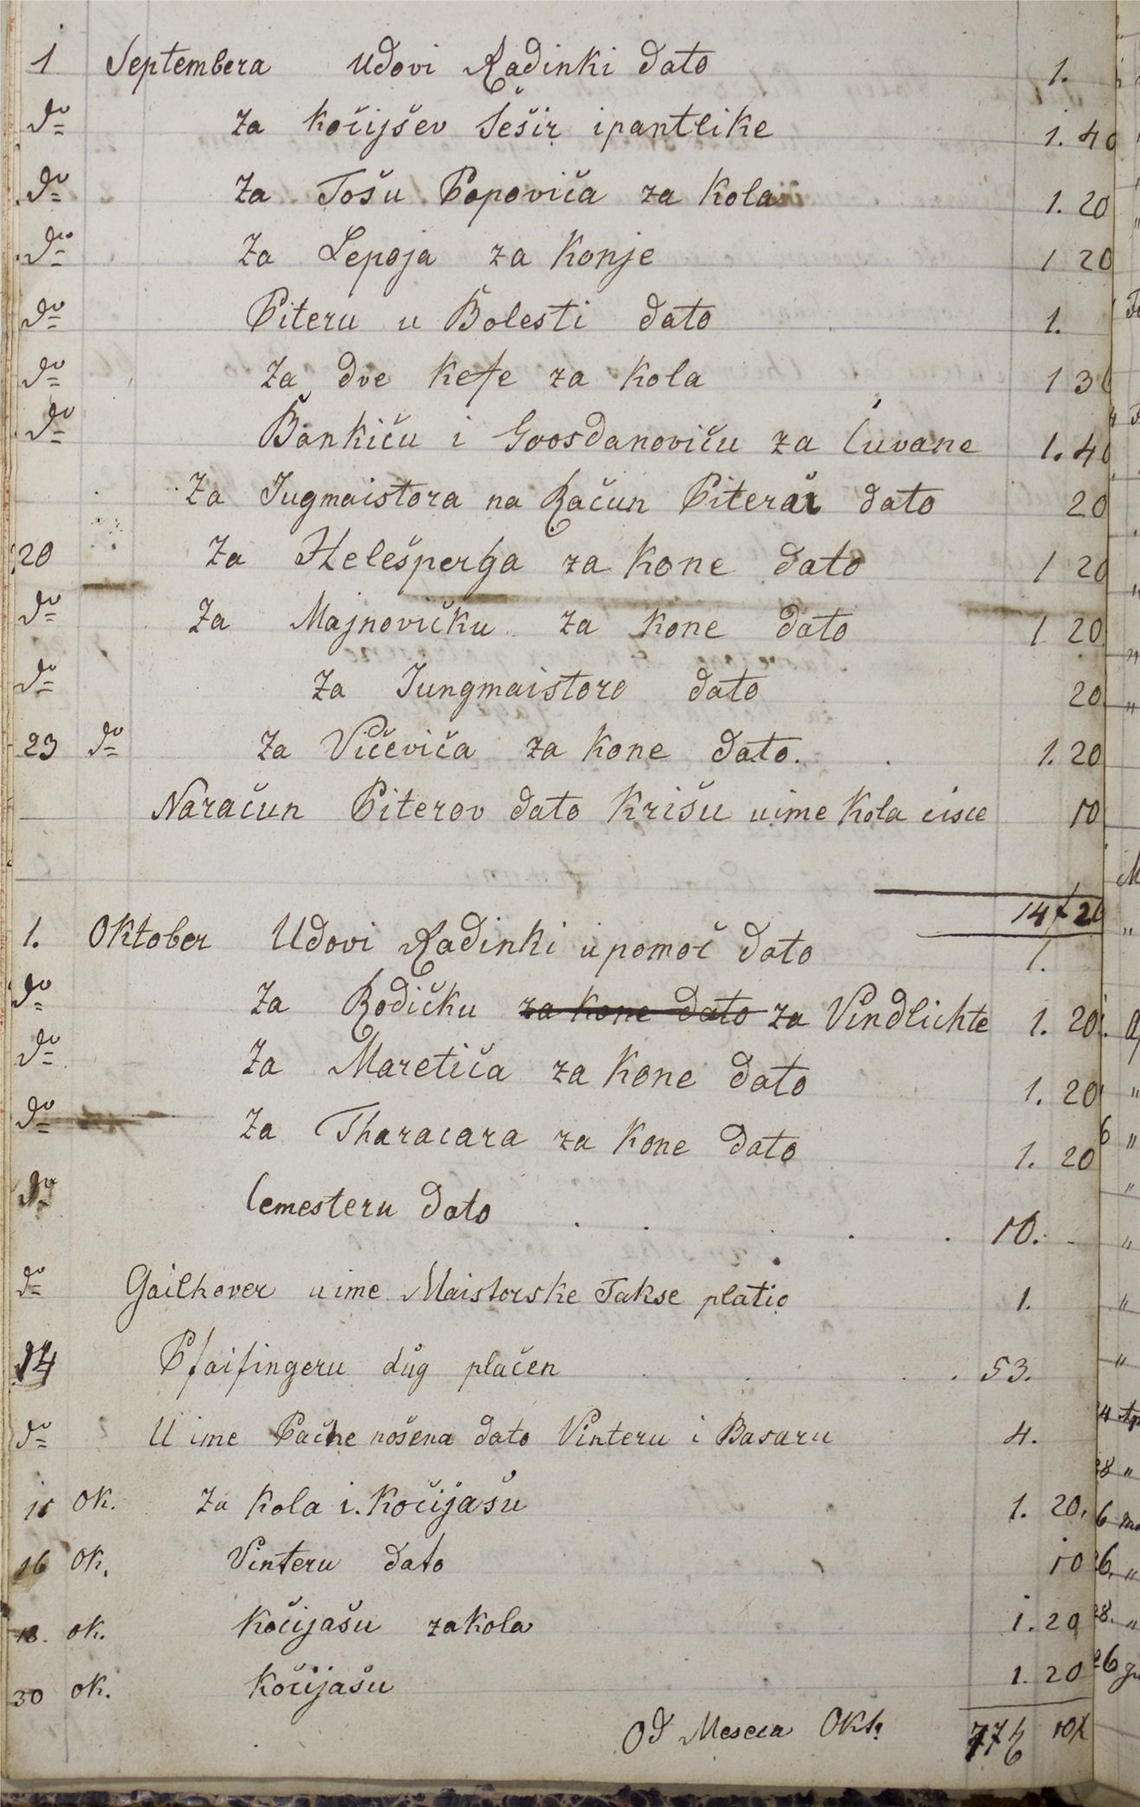 1 Septembera Udovi Radinki dato 1.
do za kočijšev šešir ipantlike 1. 40
do Za Tošu Popovića za kola 1. 20
do Za Lepoja za Konje 1 20
do Piteru u Bolesti dato 1.
do Za dve kefe za kola 1 3
do Bankiču i Gvosdanoviču za Čuvane 1. 40
Za Jugmaistora na Račun Pitera dato 20
20 Za Helešperga za kone dato 1 20
do Za Majnovičku za kone dato 1 20
do Za Jungmaistoro dato 20
23 do Za Vičeviča za kone dato. 1. 20
Naračun Piterov dato Krišu uime Kola čisce 10
14f 20
1. Oktober Udovi Radinki upomoč dato 1.
do Za Rodičku za kone dato za Vindlichte 1. 20
do Za Maretiča za kone dato 1. 20
do Za Tharacara za kone dato 1. 20
do Cemesteru dato 10.
do Gailhover uime Maistorske Takse platio 1.
14 Pfaifingeru dŭg plačen 53.
do U ime Pačke nošena dato Vinteru i Basaru 4.
15 ok. Za kola i. kočijašu 1. 20.
16 ok. Vinteru dato 10
18. ok. kočijašu zakola 1. 20
30 ok. kočijašu 1. 20
Od Meseca Okt. 77f 10x